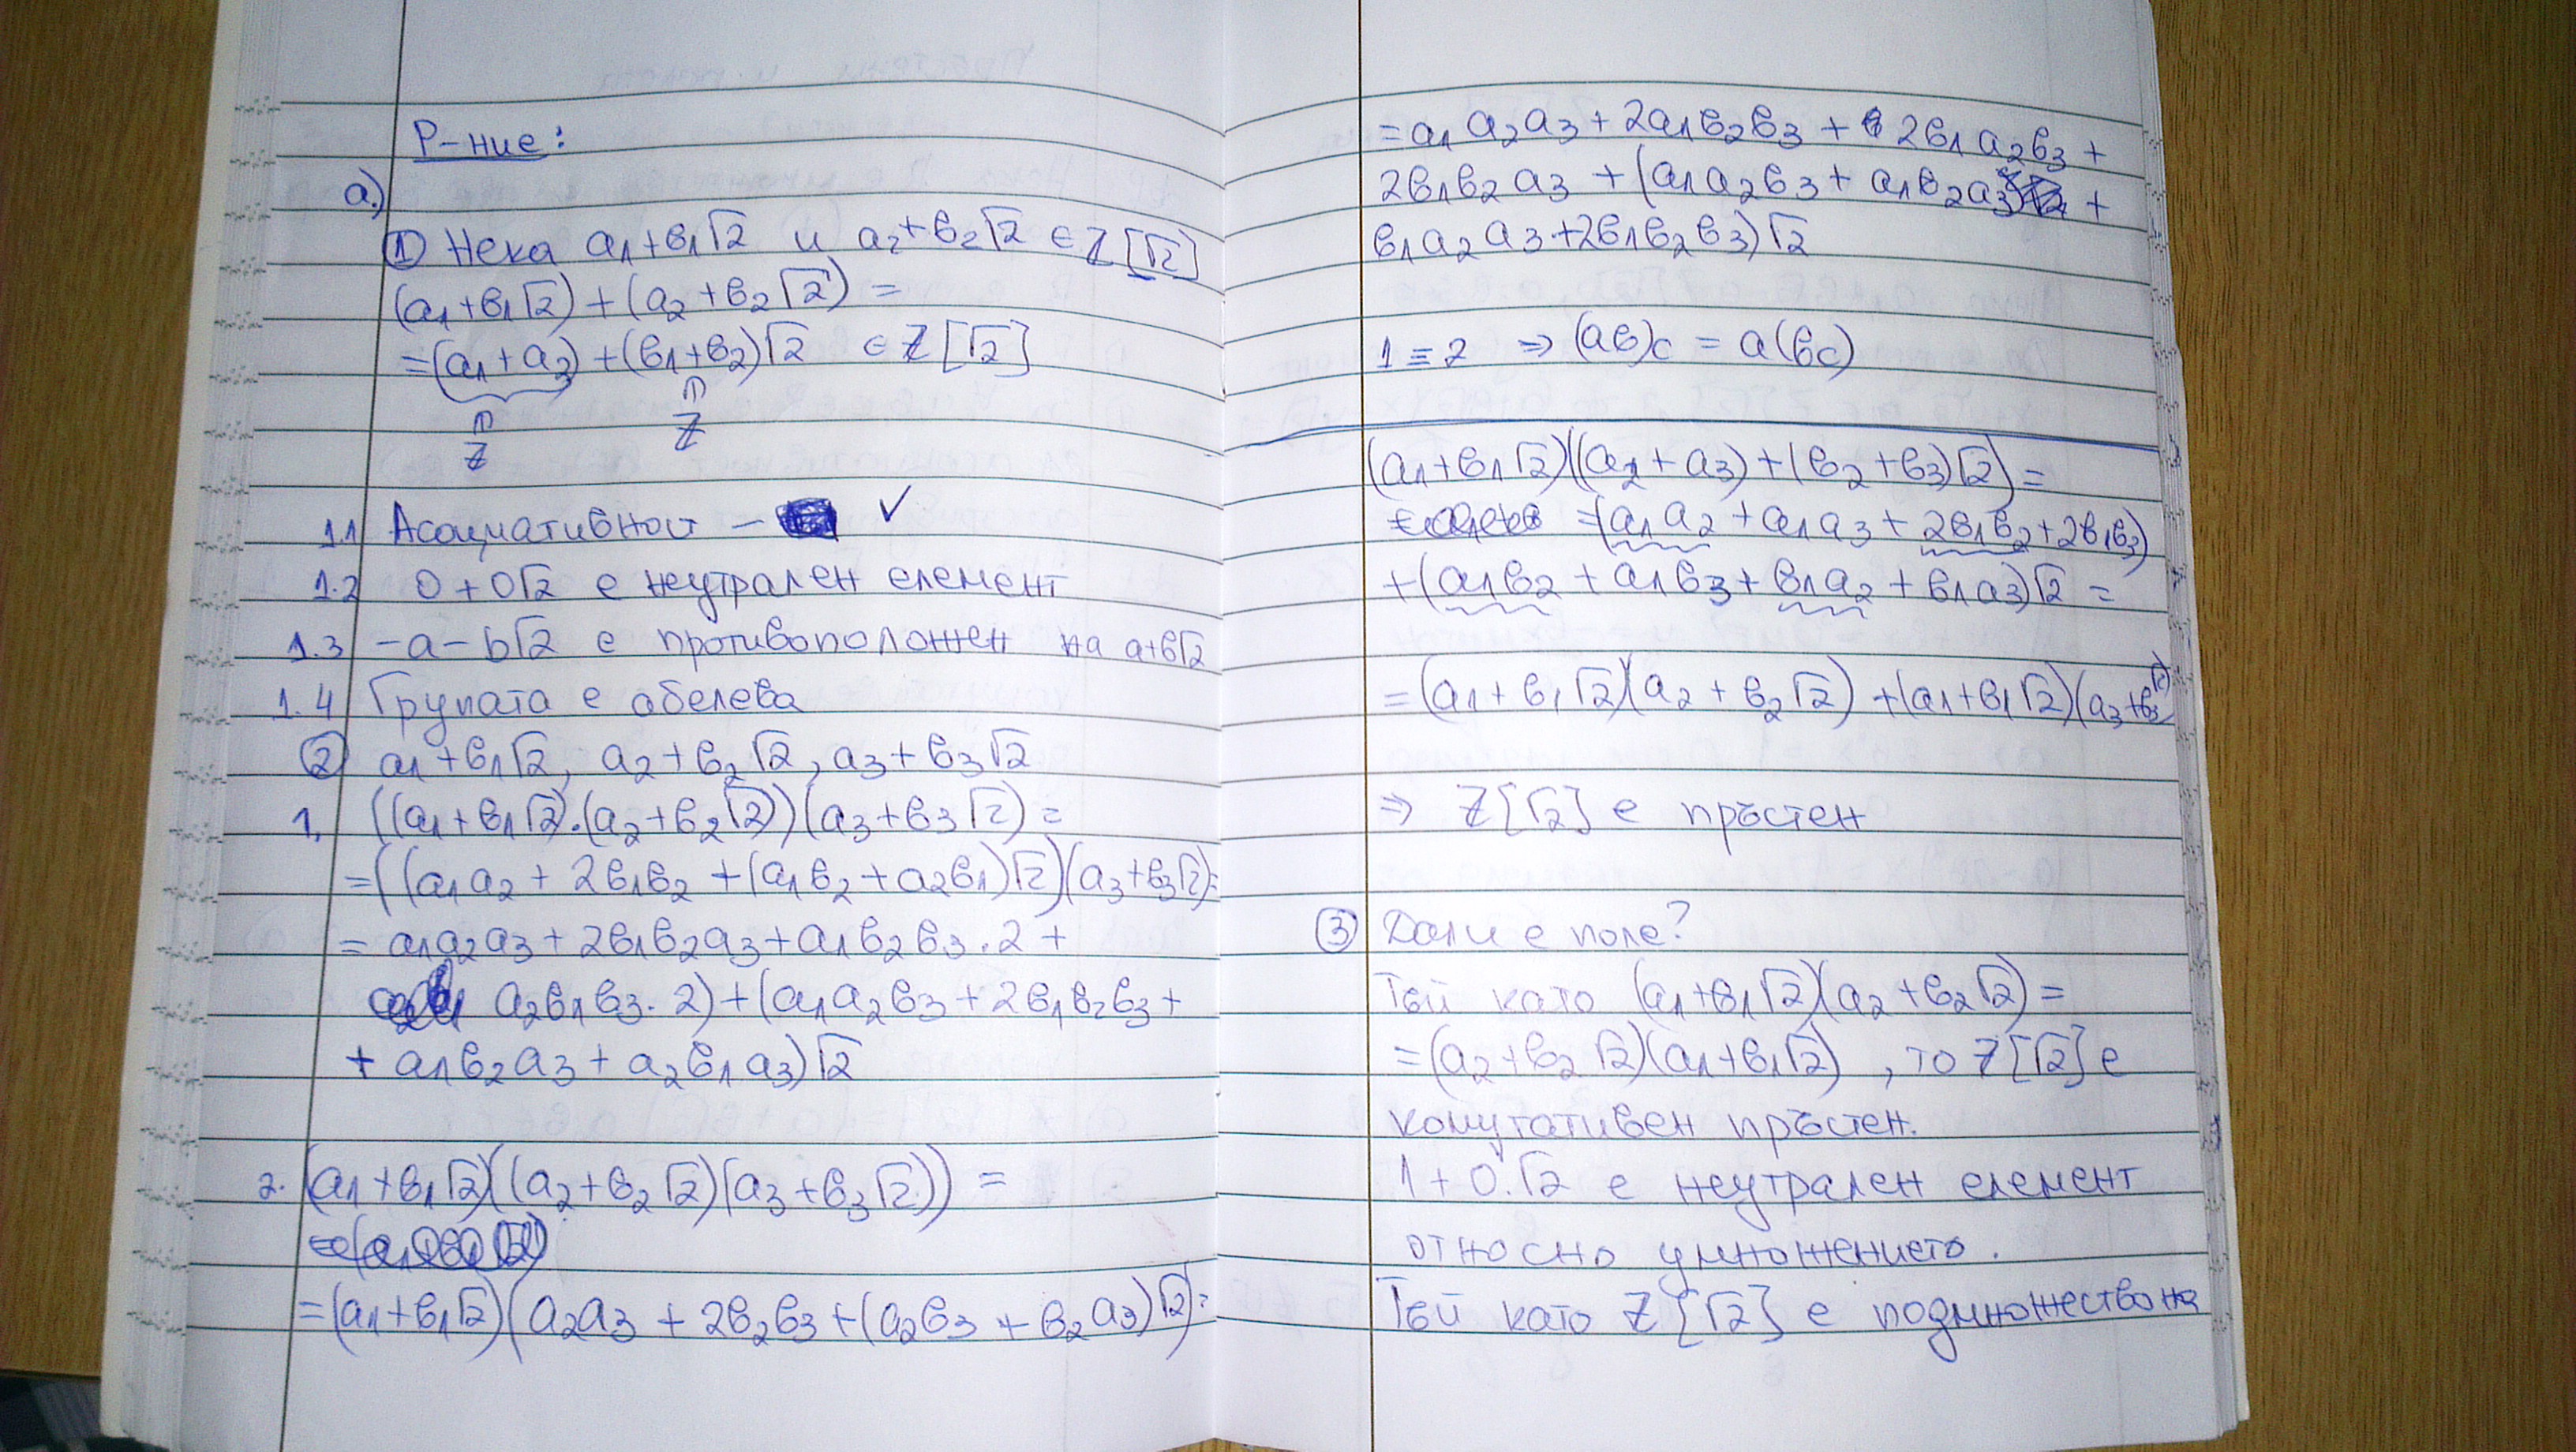 Р-ние:
а.)
① Нека a₁+в₁√2 и a₂+в₂√2 ∈ Z[√2]
(a₁+в₁√2)+(a₂+в₂√2) =
=(a₁+a₂)+(в₁+в₂)√2 ∈ Z[√2]
∩ ∩
Z Z
1.1 Асоциативност – ✓
1.2 0+0√2 е неутрален елемент
1.3 -a-b√2 е противоположен на a+в√2
1.4 Групата е абелева
② a₁+в₁√2, a₂+в₂√2, a₃+в₃√2
1. ((a₁+в₁√2).(a₂+в₂√2))(a₃+в₃√2)=
=((a₁a₂+2в₁в₂+(a₁в₂+a₂в₁)√2)(a₃+в₃√2)=
= a₁a₂a₃+2в₁в₂a₃+a₁в₂в₃.2+
a₂в₁в₃.2)+(a₁a₂в₃+2в₁в₂в₃+
+ a₁в₂a₃+a₂в₁a₃)√2
2. (a₁+в₁√2)((a₂+в₂√2)(a₃+в₃√2)) =
=(a₁+в₁√2)(a₂a₃+2в₂в₃+(a₂в₃+в₂a₃)√2)=
=a₁a₂a₃+2a₁в₂в₃+2в₁a₂в₃+
2в₁в₂a₃+(a₁a₂в₃+a₁в₂a₃+
в₁a₂a₃+2в₁в₂в₃)√2
1=2 ⇒ (aв)c = a(вc)
(a₁+в₁√2)((a₂+a₃)+(в₂+в₃)√2)=
=(a₁a₂+a₁a₃+2в₁в₂+2в₁в₃)
+(a₁в₂+a₁в₃+в₁a₂+в₁a₃)√2=
=(a₁+в₁√2)(a₂+в₂√2)+(a₁+в₁√2)(a₃+в₃√2)
⇒ Z[√2] е пръстен
③ Дали е поле?
Тъй като (a₁+в₁√2)(a₂+в₂√2)=
=(a₂+в₂√2)(a₁+в₁√2), то Z[√2] е
комутативен пръстен.
1+0.√2 е неутрален елемент
относно умножението.
Тъй като Z[√2] е подмножество на